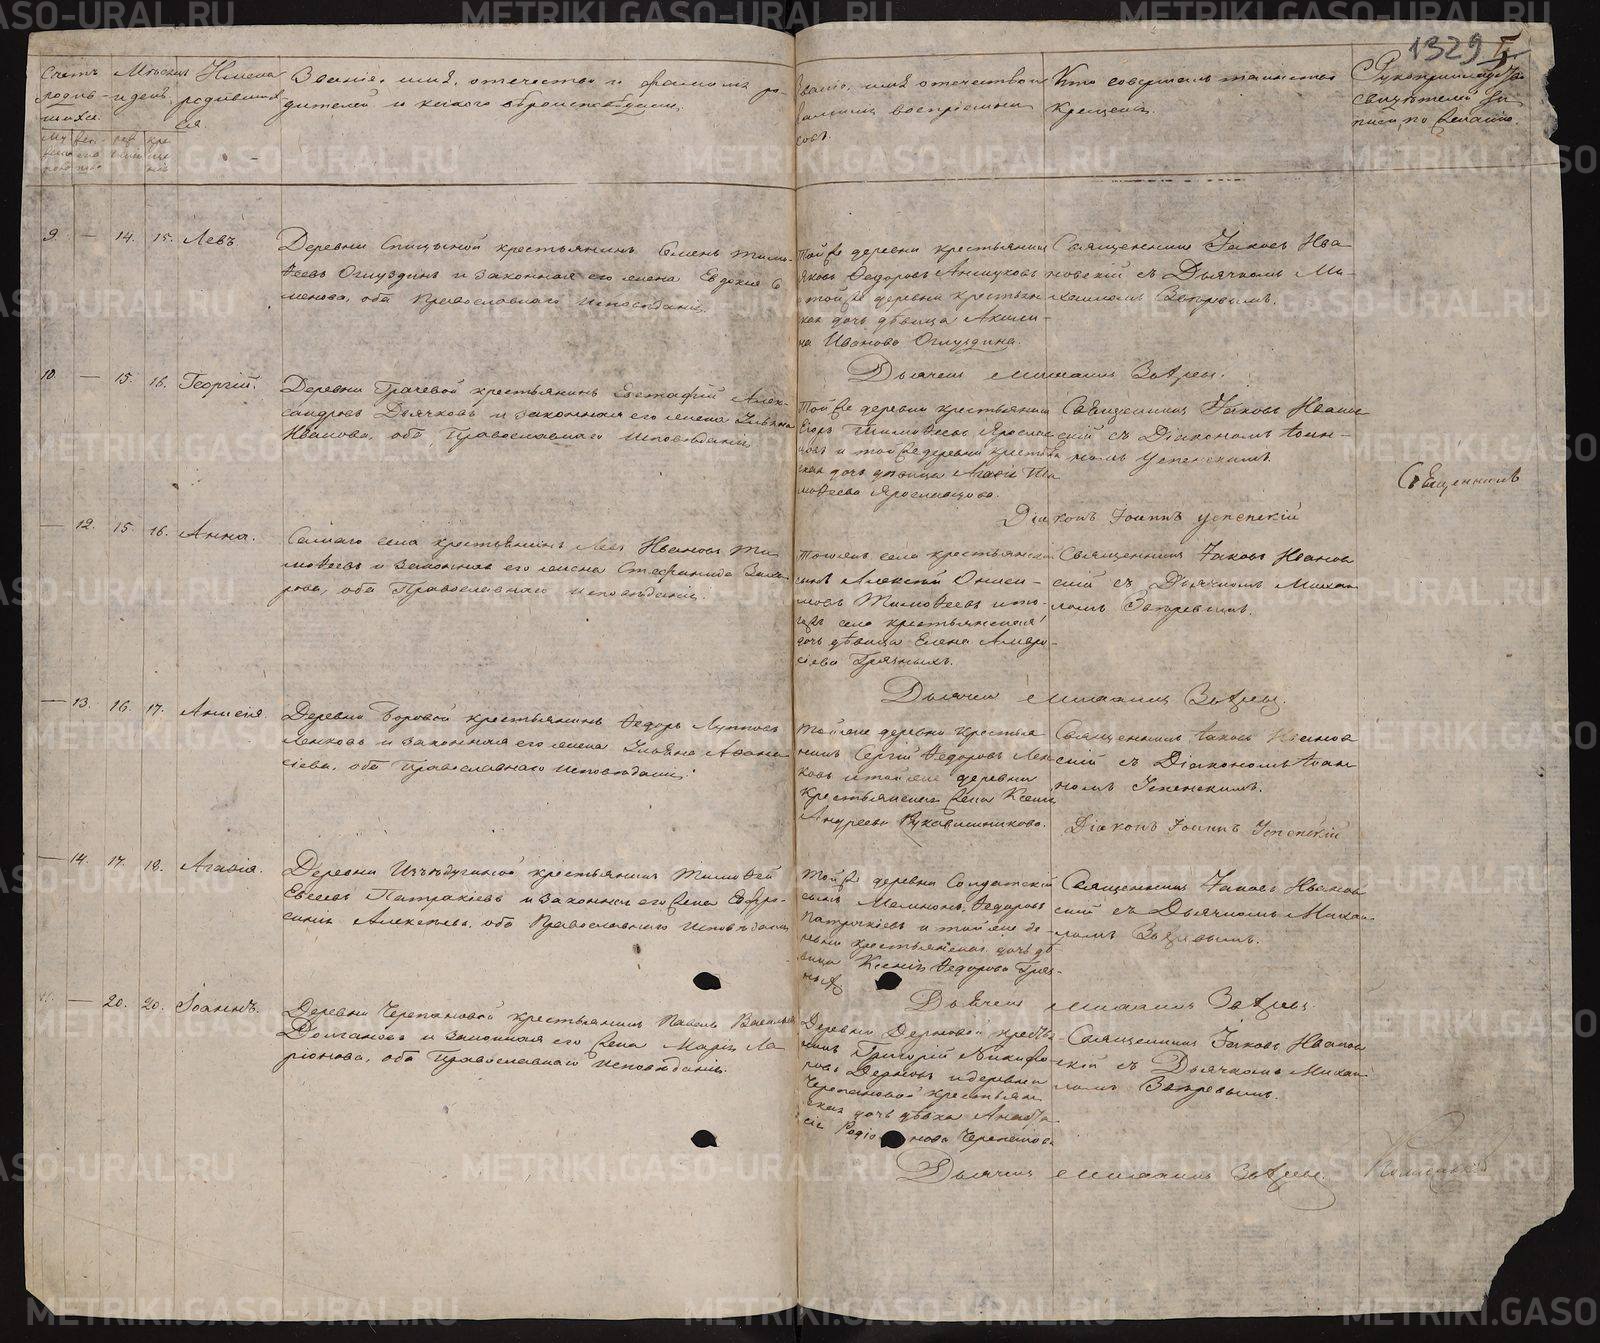 METRIKI.GASO-URAL.RU
1329
Счетъ родившихся
Мѣсяцъ и день
Имена родившихся
Званіе, имя, отечество и фамилія родителей и какого вѣроисповѣданія
Званіе, имя отечество и фамилія воспріемниковъ
Кто совершалъ таинство Крещенія.
Рукоприкладство свидѣтелей записи по желанію.
9. — 14. 15. Левъ.
Деревни Спицыной крестьянинъ Семенъ Тимо-
ѳеевъ Оглуздинъ и законная его жена Евдокія Се
менова, оба Православнаго исповѣданія.
Той же деревни крестьянинъ
Яковъ Ѳедоровъ
той же деревни крестьян
ская дочь дѣвица Акили-
на Иванова Оглуздина.
Священникъ Іаковъ Ива
новскій съ Дьячкомъ Ми-
хаиломъ Звѣревымъ.
Дьячекъ Михаилъ Звѣревъ.
10. — 15. 16. Георгій.
Деревни Грачевой крестьянинъ Евстафій Алек-
сандровъ Дьячковъ и законная его жена Ульяна
Иванова, оба Православнаго исповѣданія
Той же деревни крестьянинъ
Егоръ Тимоѳеевъ Ярослав
цовъ и той же деревни крестьян
ская дочь дѣвица Агаѳія Ти
моѳеева Ярославцова.
Священникъ Іаковъ Иванов
скій съ Діакономъ Іоан-
номъ Успенскимъ.
Діаконъ Іоаннъ Успенскій
Священникъ
— 12. 15. 16. Анна.
Самаго села крестьянинъ Левъ Ивановъ Ти
моѳеевъ и законная его жена Стефанида Заха
рова, оба Православнаго исповѣданія.
Тогоже села крестьянскій
сынъ Алексѣй Ониси-
мовъ Тимоѳеевъ и то-
гоже села крестьянская
дочь дѣвица Елена Амвро-
сіева Грязныхъ.
Священникъ Іаковъ Иванов
скій съ Дьячкомъ Михаи
ломъ Звѣревымъ.
Дьячекъ Михаилъ Звѣревъ.
— 13. 16. 17. Анисія.
Деревни Боровой крестьянинъ Ѳедоръ Лупповъ
Ленковъ и законная его жена Ульяна Аѳана
сіева, оба Православнаго исповѣданія.
Тойже деревни крестья
нинъ Сергій Ѳедоровъ Лен
ковъ и тойже деревни
крестьянская жена Ксенія
Андреева Рукавишникова.
Священникъ Іаковъ Иванов
скій съ Діакономъ Іоан
номъ Успенскимъ.
Діаконъ Іоаннъ Успенскій
— 14. 17. 18. Агаѳія.
Деревни крестьянинъ Тимоѳей
Евсеевъ Патракіевъ и законная его жена Евфро-
синія Алексѣева, оба Православнаго исповѣданія
Той же деревни Солдатскій
сынъ Мемнонъ Ѳедоровъ
Патракіевъ и тойже де
ревни крестьянская дочь дѣ
вица Ксенія Ѳедорова Гряз-
ныхъ
Священникъ Іаковъ Иванов
скій съ Дьячкомъ Михаи
ломъ Звѣревымъ.
Дьячекъ Михаилъ Звѣревъ.
— 20. 20. Іоаннъ.
Деревни Черепановой крестьянинъ Павелъ Васильевъ
Долгановъ и законная его жена Марія Ла
ріонова, оба Православнаго исповѣданія.
Деревни Дерновой кресть-
нинъ Григорій Никифо-
ровъ Дерновъ и деревни
Черепановой крестьян
ская дочь дѣвка Анаста
сія Родіонова Черепанова
Священникъ Іаковъ Иванов
скій съ Дьячкомъ Михаи
ломъ Звѣревымъ.
Дьячекъ Михаилъ Звѣревъ.